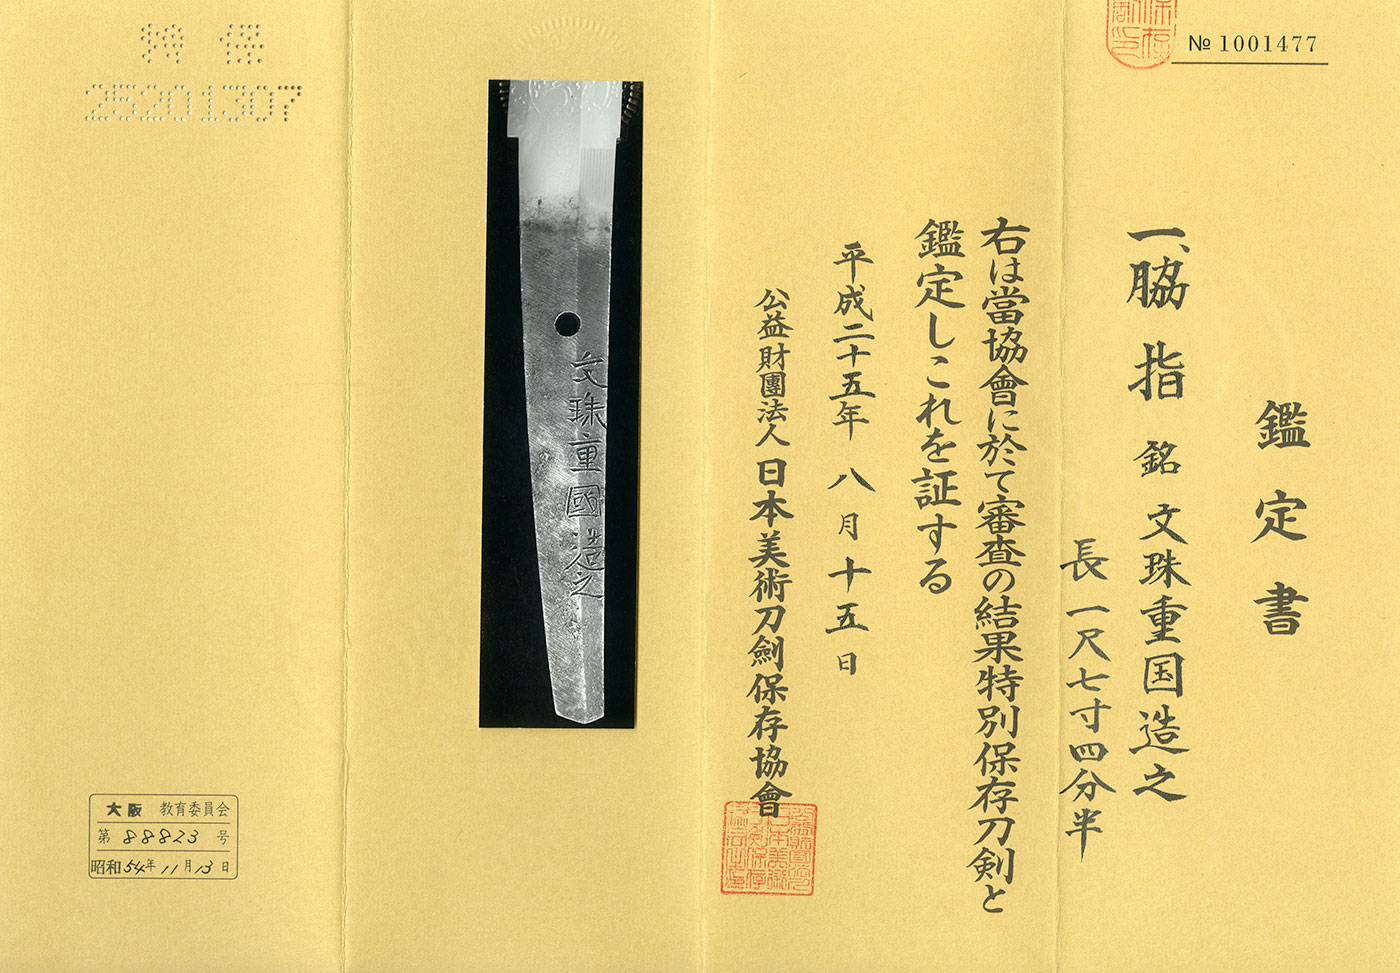 № 1001477
鑑定書
一、脇指 銘 文珠重国造之
長一尺七寸四分半
右は當協會に於て審査の結果特別保存刀剣と
鑑定しこれを証する
平成二十五年 八月十五日
公益財團法人 日本美術刀劍保存協會
文珠重國造之
特保
25201307
大阪 教育委員会
第 88823 号
昭和54年11月13日